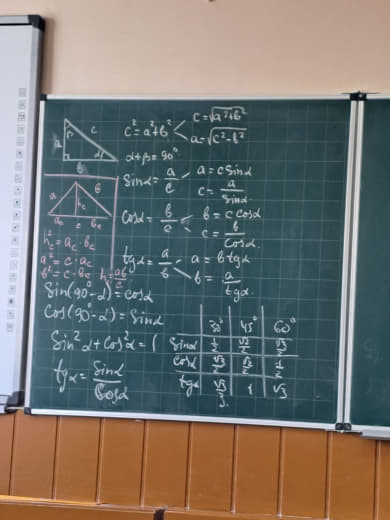 β c a α b
c² = a² + b²
c = √a² + b²
a = √c² - b²
α + β = 90°
sin α = a/c
a = c sin α
c = a/sin α
cos α = b/c
b = c cos α
c = b/cos α.
tg α = a/b
a = b tg α
b = a/tg α.
a b hc ac c bc
hc² = ac · bc
a² = c · ac
b² = c · bc h = ab/c
Sin(90° - α) = cos α
Cos(90° - α) = sin α
Sin² α + cos² α = 1
tg α = sin α/cos α
30° 45° 60°
sin α 1/2 √2/2 √3/2
cos α √3/2 √2/2 1/2
tg α √3/3 1 √3